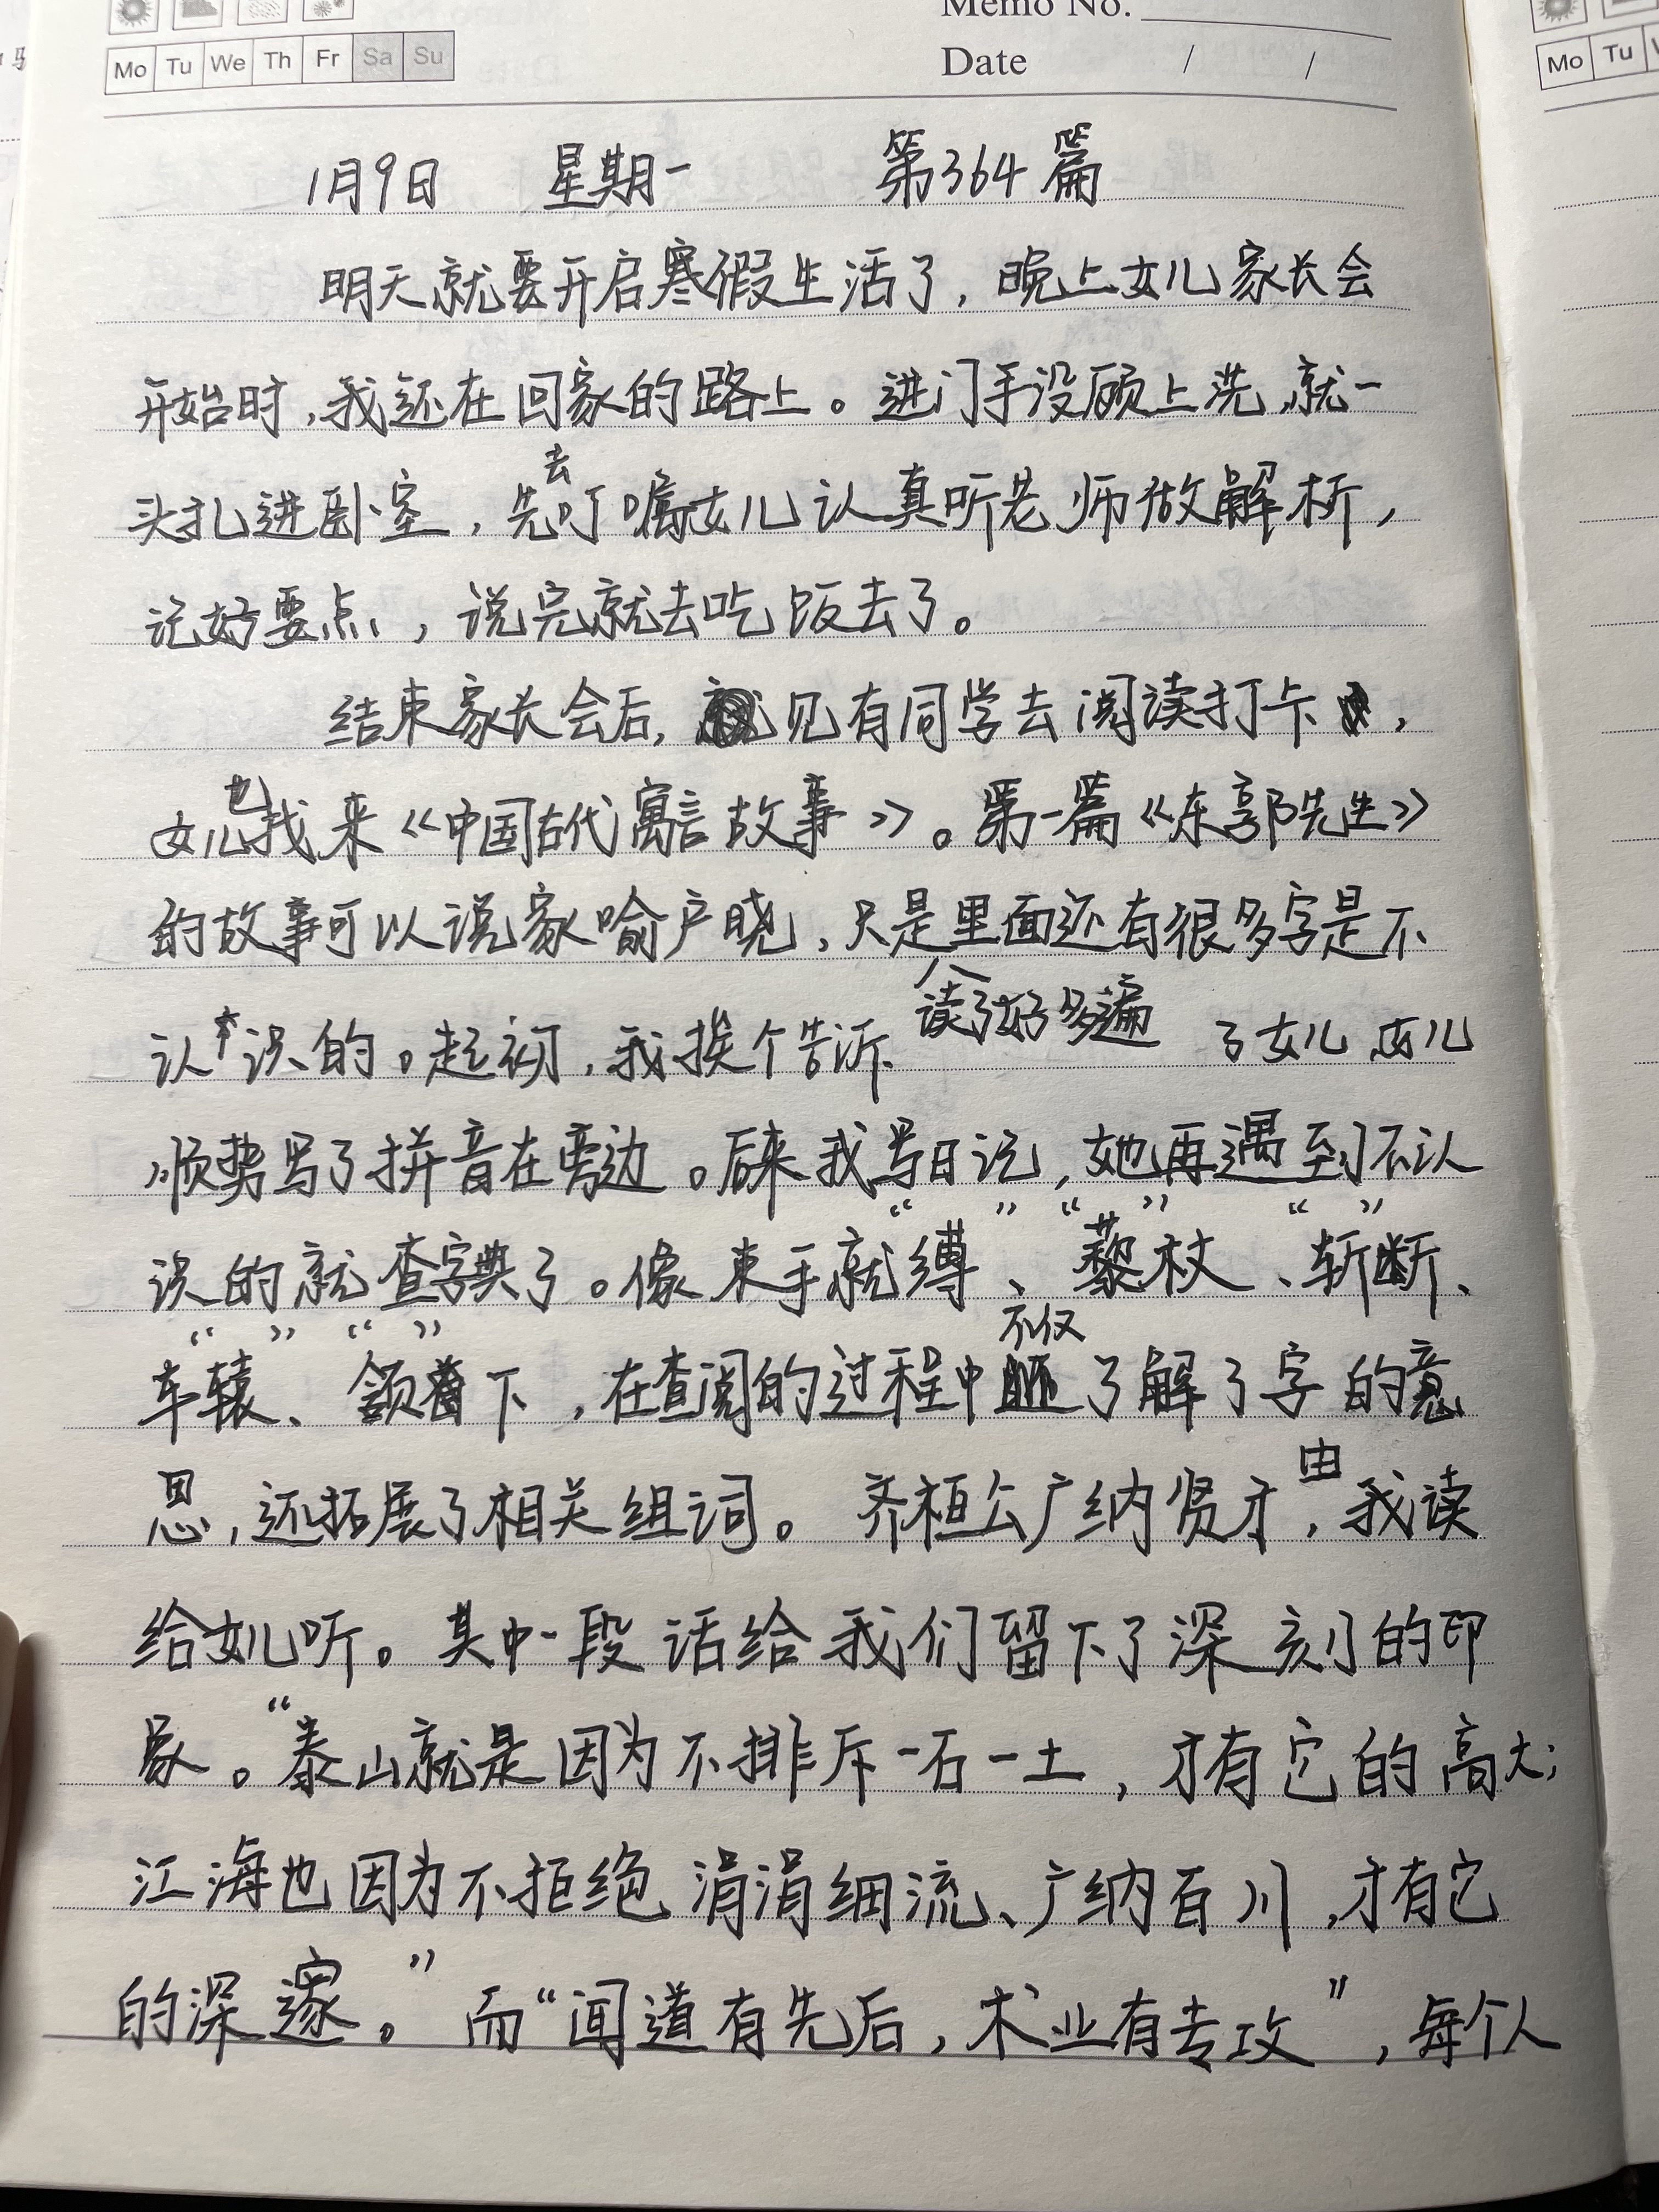 Memo No.
Mo Tu We Th Fr Sa Su
Date / /
Mo Tu
1月9日 星期一 第364篇
明天就要开启寒假生活了，晚上女儿家长会
开始时，我还在回家的路上。进门手没顾上洗，就一
去
头扎进卧室，先叮嘱女儿认真听老师做解析，
记好要点，说完就去吃饭去了。
结束家长会后，见有同学去阅读打卡，
也
女儿找来《中国古代寓言故事》。第一篇《东郭先生》
的故事可以说家喻户晓，只是里面还有很多字是不
读了好多遍
认识的。起初，我挨个告诉 了女儿，女儿
顺势写了拼音在旁边。后来我写日记，她再遇到不认
识的就查字典了。像束手就“缚”、“藜”杖、“斩”断、
不仅
车“辕”、“颔”首下，在查阅的过程中 了解了字的意
由
思，还拓展了相关组词。齐桓公广纳贤才，我读
给女儿听。其中一段话给我们留下了深刻的印
象。“泰山就是因为不排斥一石一土，才有它的高大；
江海也因为不拒绝涓涓细流、广纳百川，才有它
的深邃。”而“闻道有先后，术业有专攻”，每个人